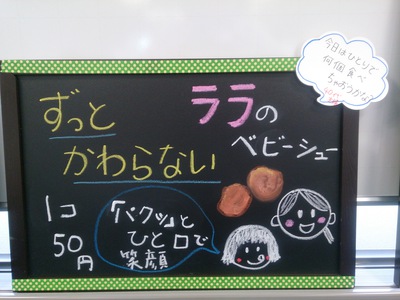 ずっと
かわらない
ララの
ベビーシュー
1コ
50円
「パクッ」と
ひと口で
笑顔
今日はひとりで
何個食べ
ちゃおうかな